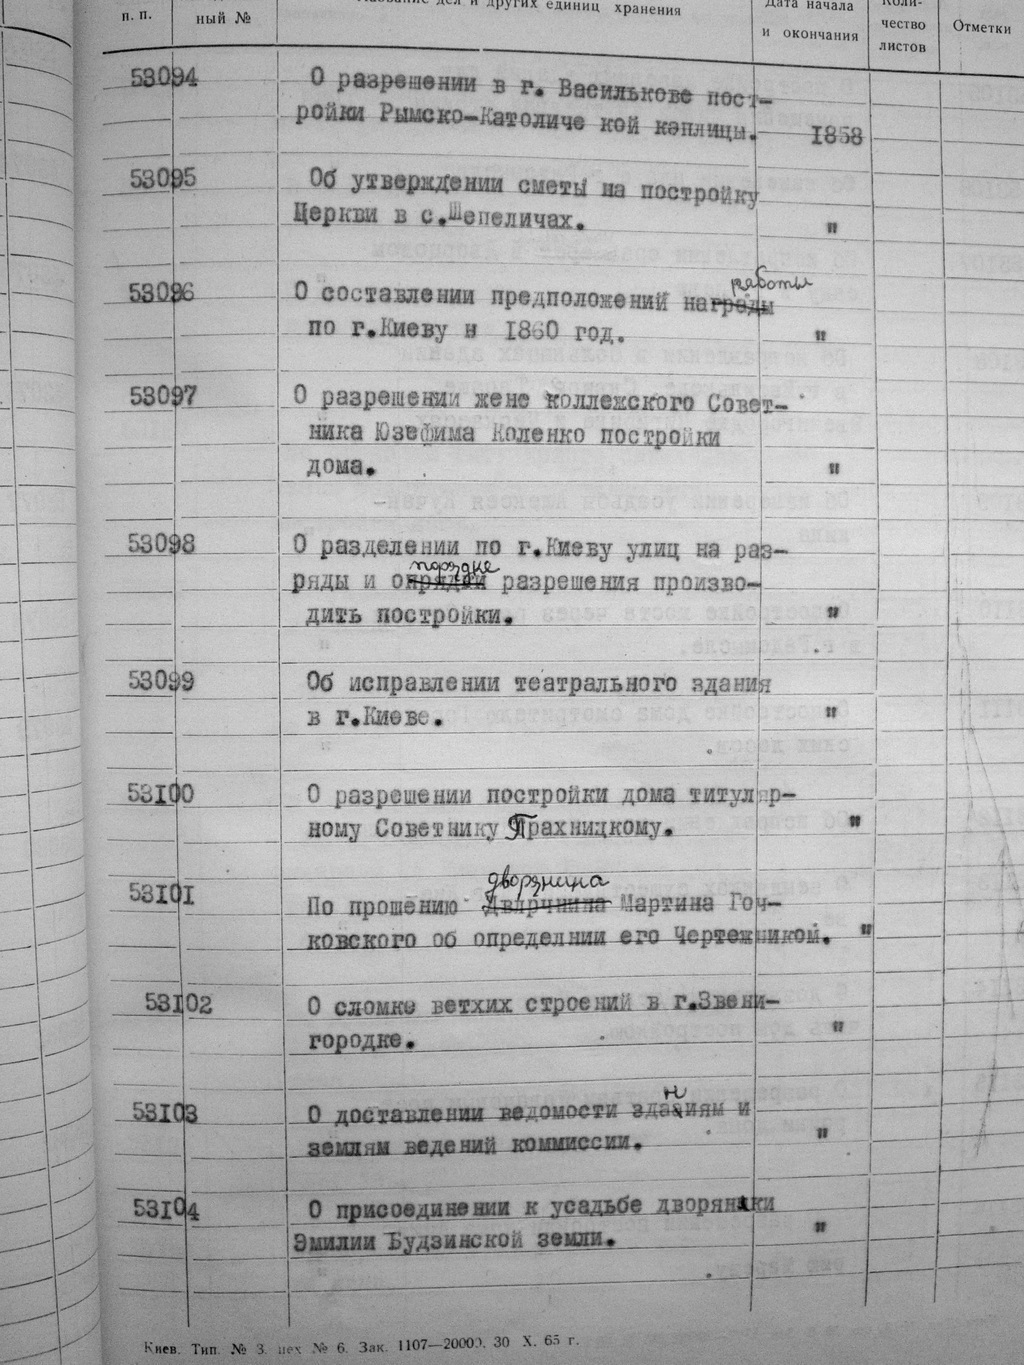 п. п.
ный №
Название дел и других единиц хранения
Дата начала
и окончания
Коли-
чество
листов
Отметки
53094 О разрешении в г. Василькове пост-
ройки Рымско-Католиче кой кэплицы. 1858
53095 Об утверждении сметы на постройку
Церкви в с.Шепеличах. "
работы
53096 О составлении предположений награды
по г.Киеву н 1860 год. "
53097 О разрешении жене коллежского Совет-
ника Юзефима Коленко постройки
дома. "
53098 О разделении по г.Киеву улиц на раз-
порядке
ряды и опрядки разрешения произво-
дить постройки. "
53099 Об исправлении театрального здания
в г.Киеве. "
53100 О разрешении постройки дома титуляр-
ному Советнику Прахницкому. "
дворянина
53101 По прошению Двлрчнина Мартина Гоч-
ковского об определнии его Чертежником. "
53102 О сломке ветхих строений в г.Звени-
городке. "
н
53103 О доставлении ведомости зданиям и
землям ведений коммиссии. "
53104 О присоединении к усадьбе дворянки
Эмилии Будзинской земли. "
Киев. Тип. № 3. цех № 6. Зак. 1107—20000. 30 X. 65 г.